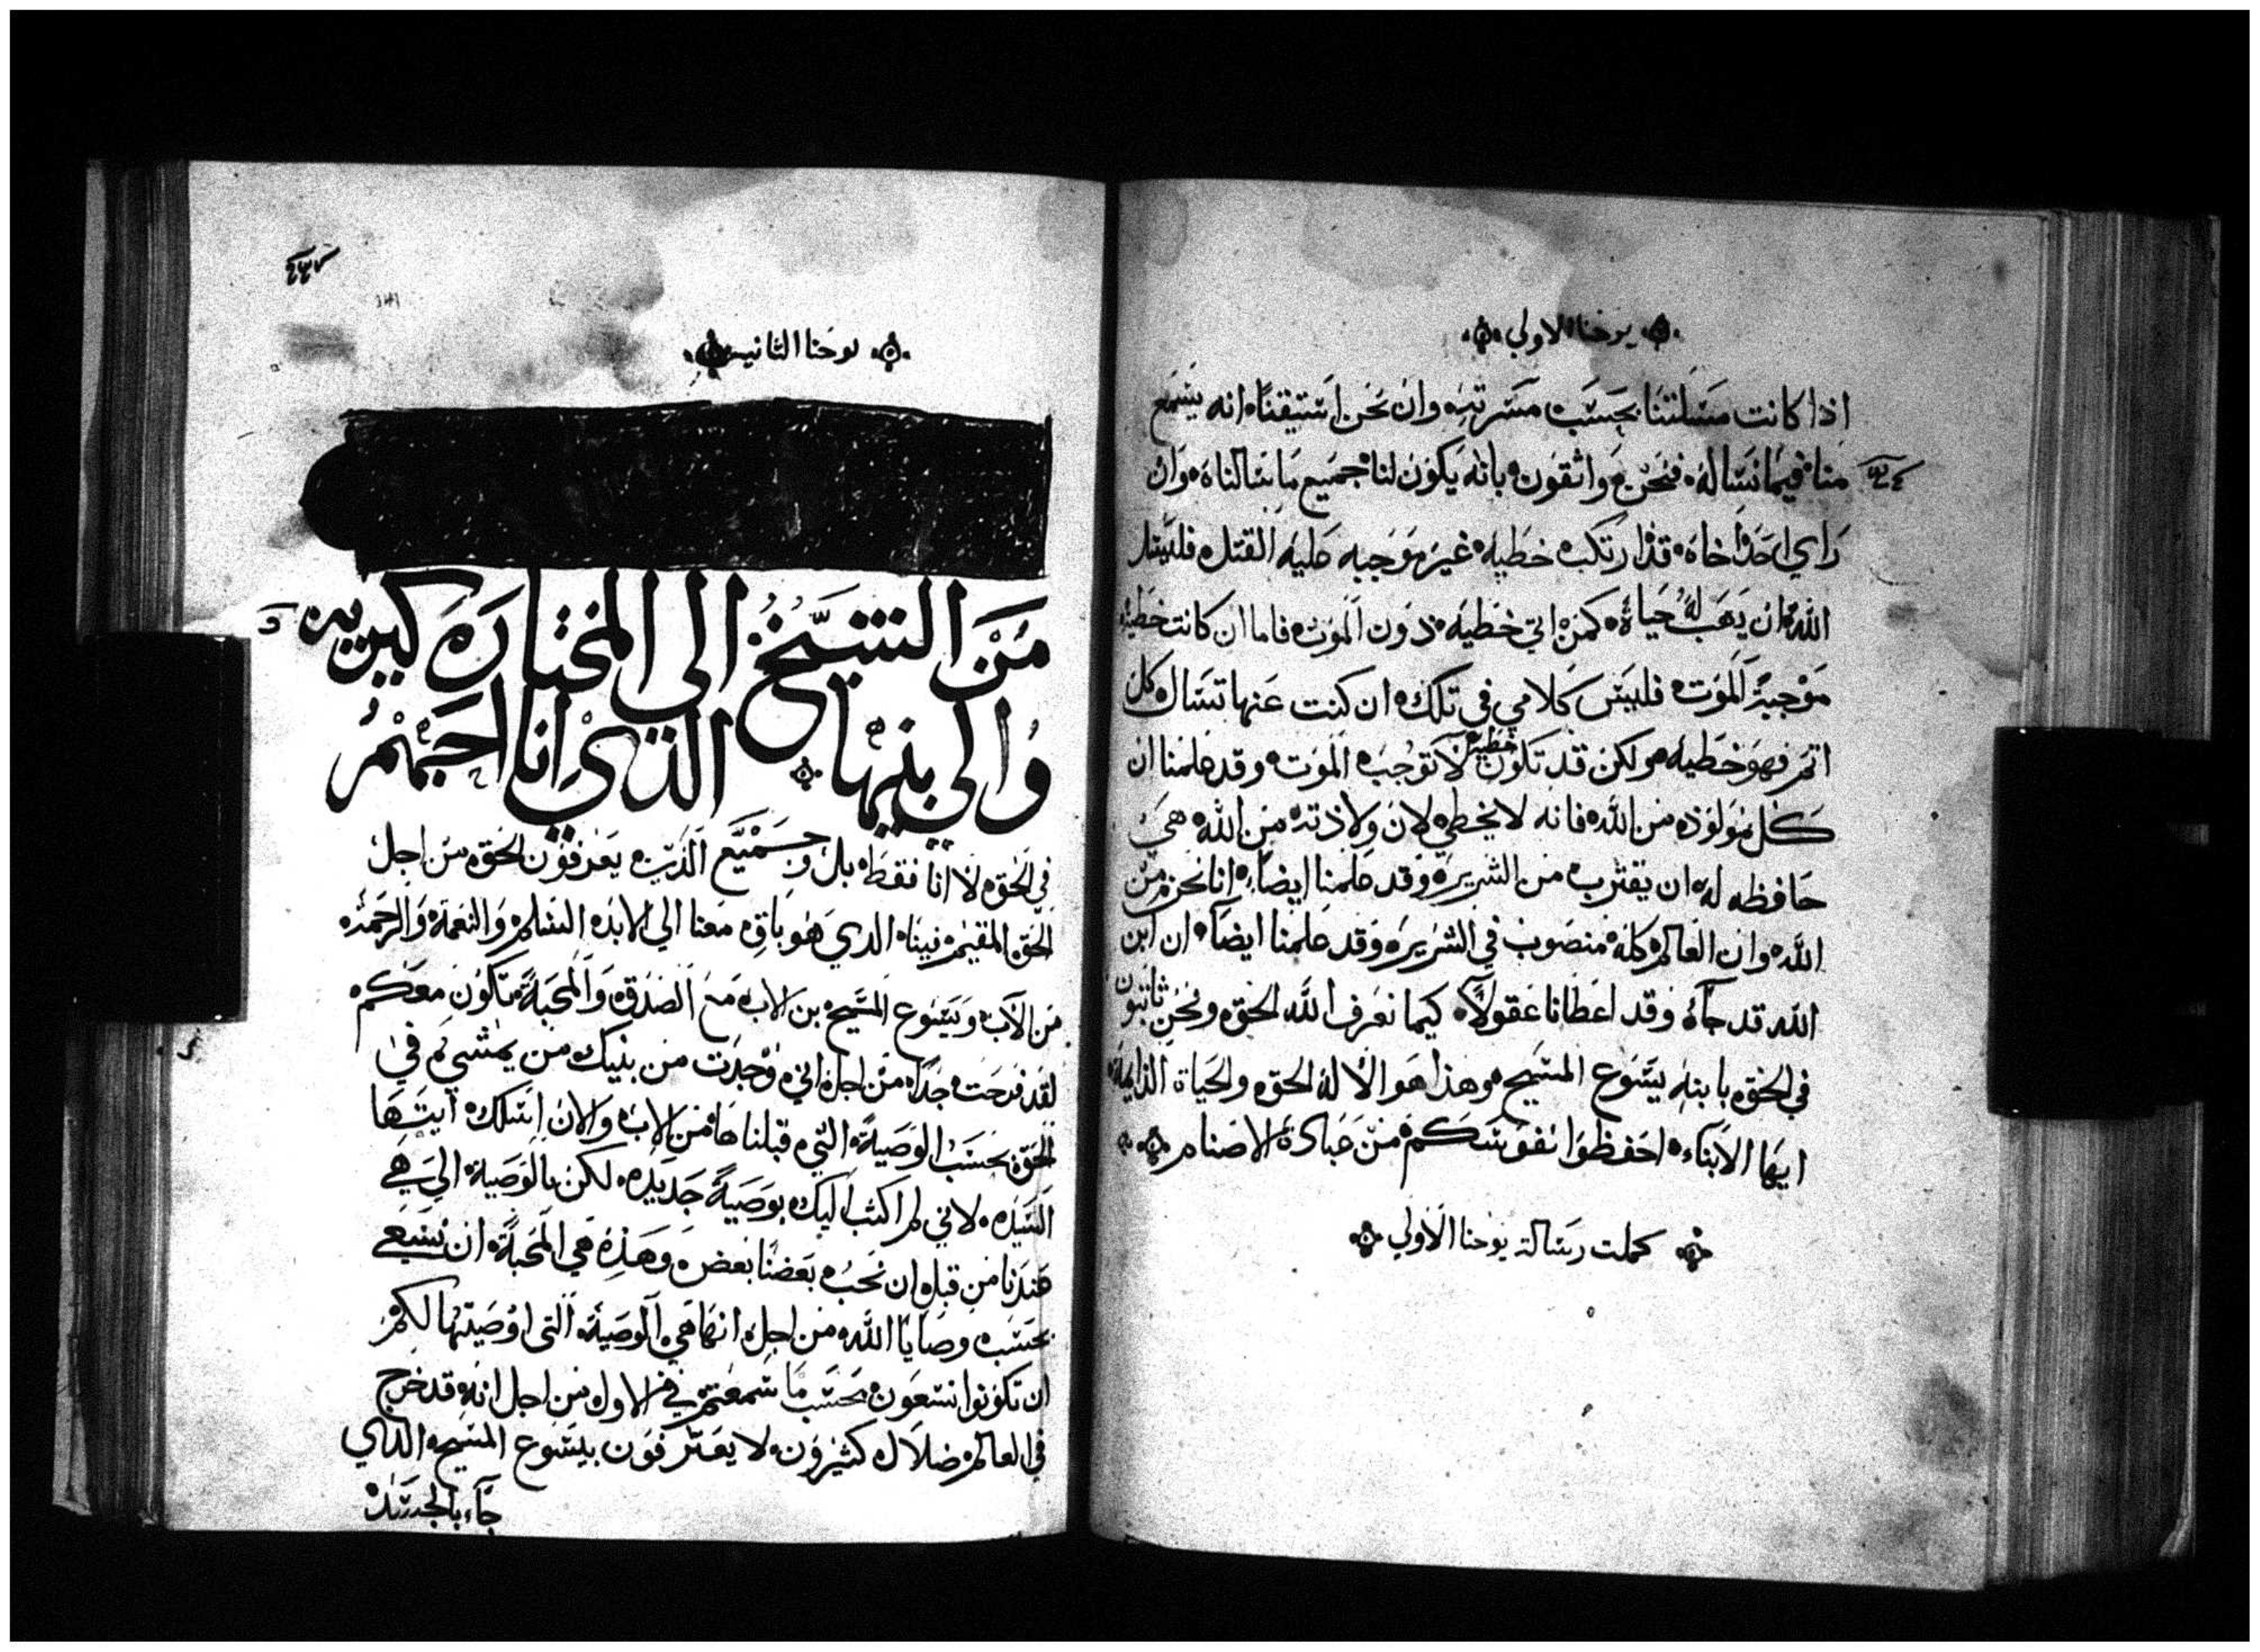 يوحنا الاولي
اذا كانت مسلتنا بحسب مسرته وان نحن استيقنا انه يسمع
منا فيما نساله فنحن واثقون بانه يكون لنا جميع ما سالناه وان
راي احدا خاه قد ارتكب خطيه غير موجبه عليه القتل فليسل
الله ان يهب له حياة كمن اتي خطيه دون الموت فاما ان كانت خطيه
موجبة الموت فليس كلامي في تلك ان كنت عنها تسال كل
اثم فهو خطيه ولكن قد تكون خطيه لا توجب الموت وقد علمنا ان
كل مولود من الله فانه لا يخطي لان ولادته من الله هي
حافظه له ان يقترب من الشرير وقد علمنا ايضا انا نحن من
الله وان العالم كله منصوب في الشرير وقد علمنا ايضا ان ابن
الله قد جآء وقد اعطانا عقولا كيما نعرف الله الحق ونحن ثابتون
في الحق بابنه يسوع المسيح وهذا هو الاله الحق والحياة الدايمة
ايها الابناء احفظوا نفوسكم من عبادة الاصنام
كملت رسالة يوحنا الاولي
يوحنا الثانيه
من الشيخ الي المختاره كيريه
والي بنيها الذي انا احبهم
في الحق لا انا فقط بل وجميع الذين يعرفون الحق من اجل
الحق المقيم فينا الدي هو باق معنا الي الابد السلم والنعمة والرحمة
من الآب ويسوع المسيح بن الاب مع الصدق والمحبة تكون معكم
لقد فرحت جدا من اجل اني وجدت من بنيك من يمشي في
الحق بحسب الوصية التي قبلناها من الاب والان اسلك ايتها
السيده لاني لم اكتب اليك بوصية جديده لكن بالوصية التي هي
عندنا من قبل ان نحب بعضنا بعض وهذه هي المحبة ان نسعي
بحسب وصايا الله من اجل انها هي الوصية التي اوصيتها لكم
ان تكونوا تسعون بحسب ما سمعتم في الاول من اجل انه قد خرج
في العالم ضلال كثيرون لا يعترفون بيسوع المسيح الدي
جآء بالجسد